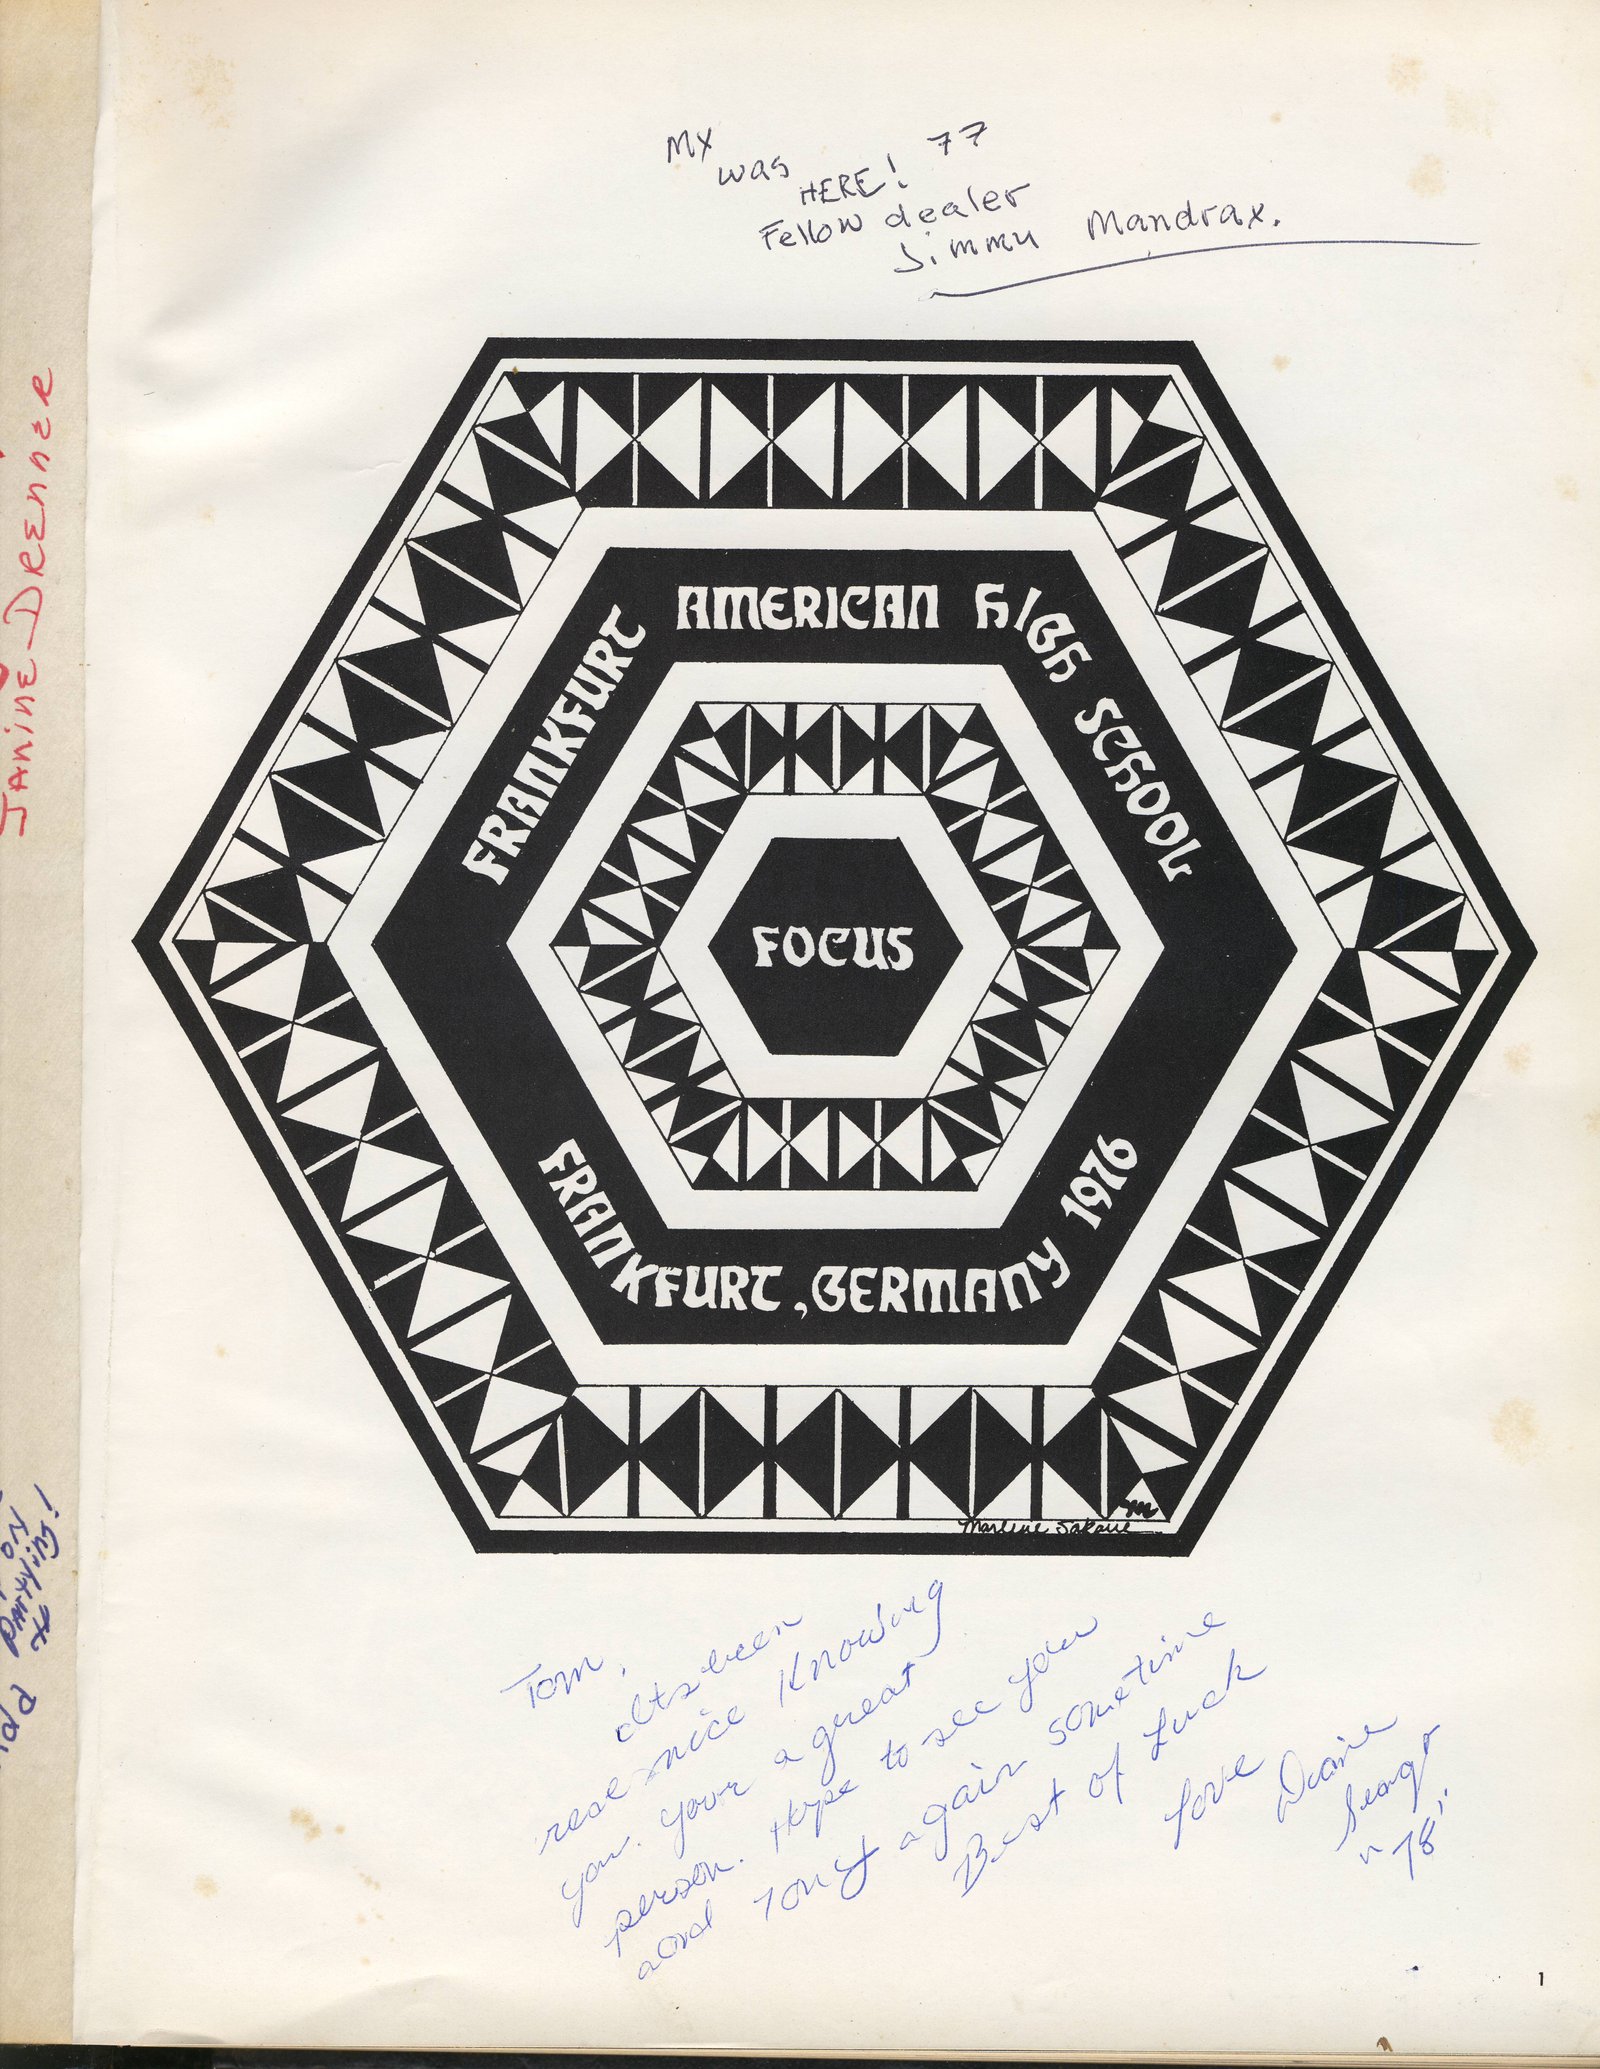 MX
was
HERE! 77
Fellow dealer
Jimmy Mandrax.
JANINE DRENNER
FRANKFURT AMERICAN HIGH SCHOOL
FOCUS
FRANKFURT, GERMANY 1976
Marlene
Tom,
Its been
real nice Knowing
you. Your a great
person. Hope to see you
and Tony again sometime
Best of Luck
Love Diane
"78"
ON
PARTYING!